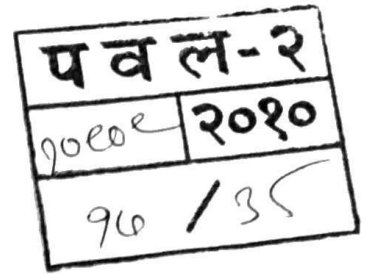 पवल-२
१०९०९ २०१०
१७ / ३५